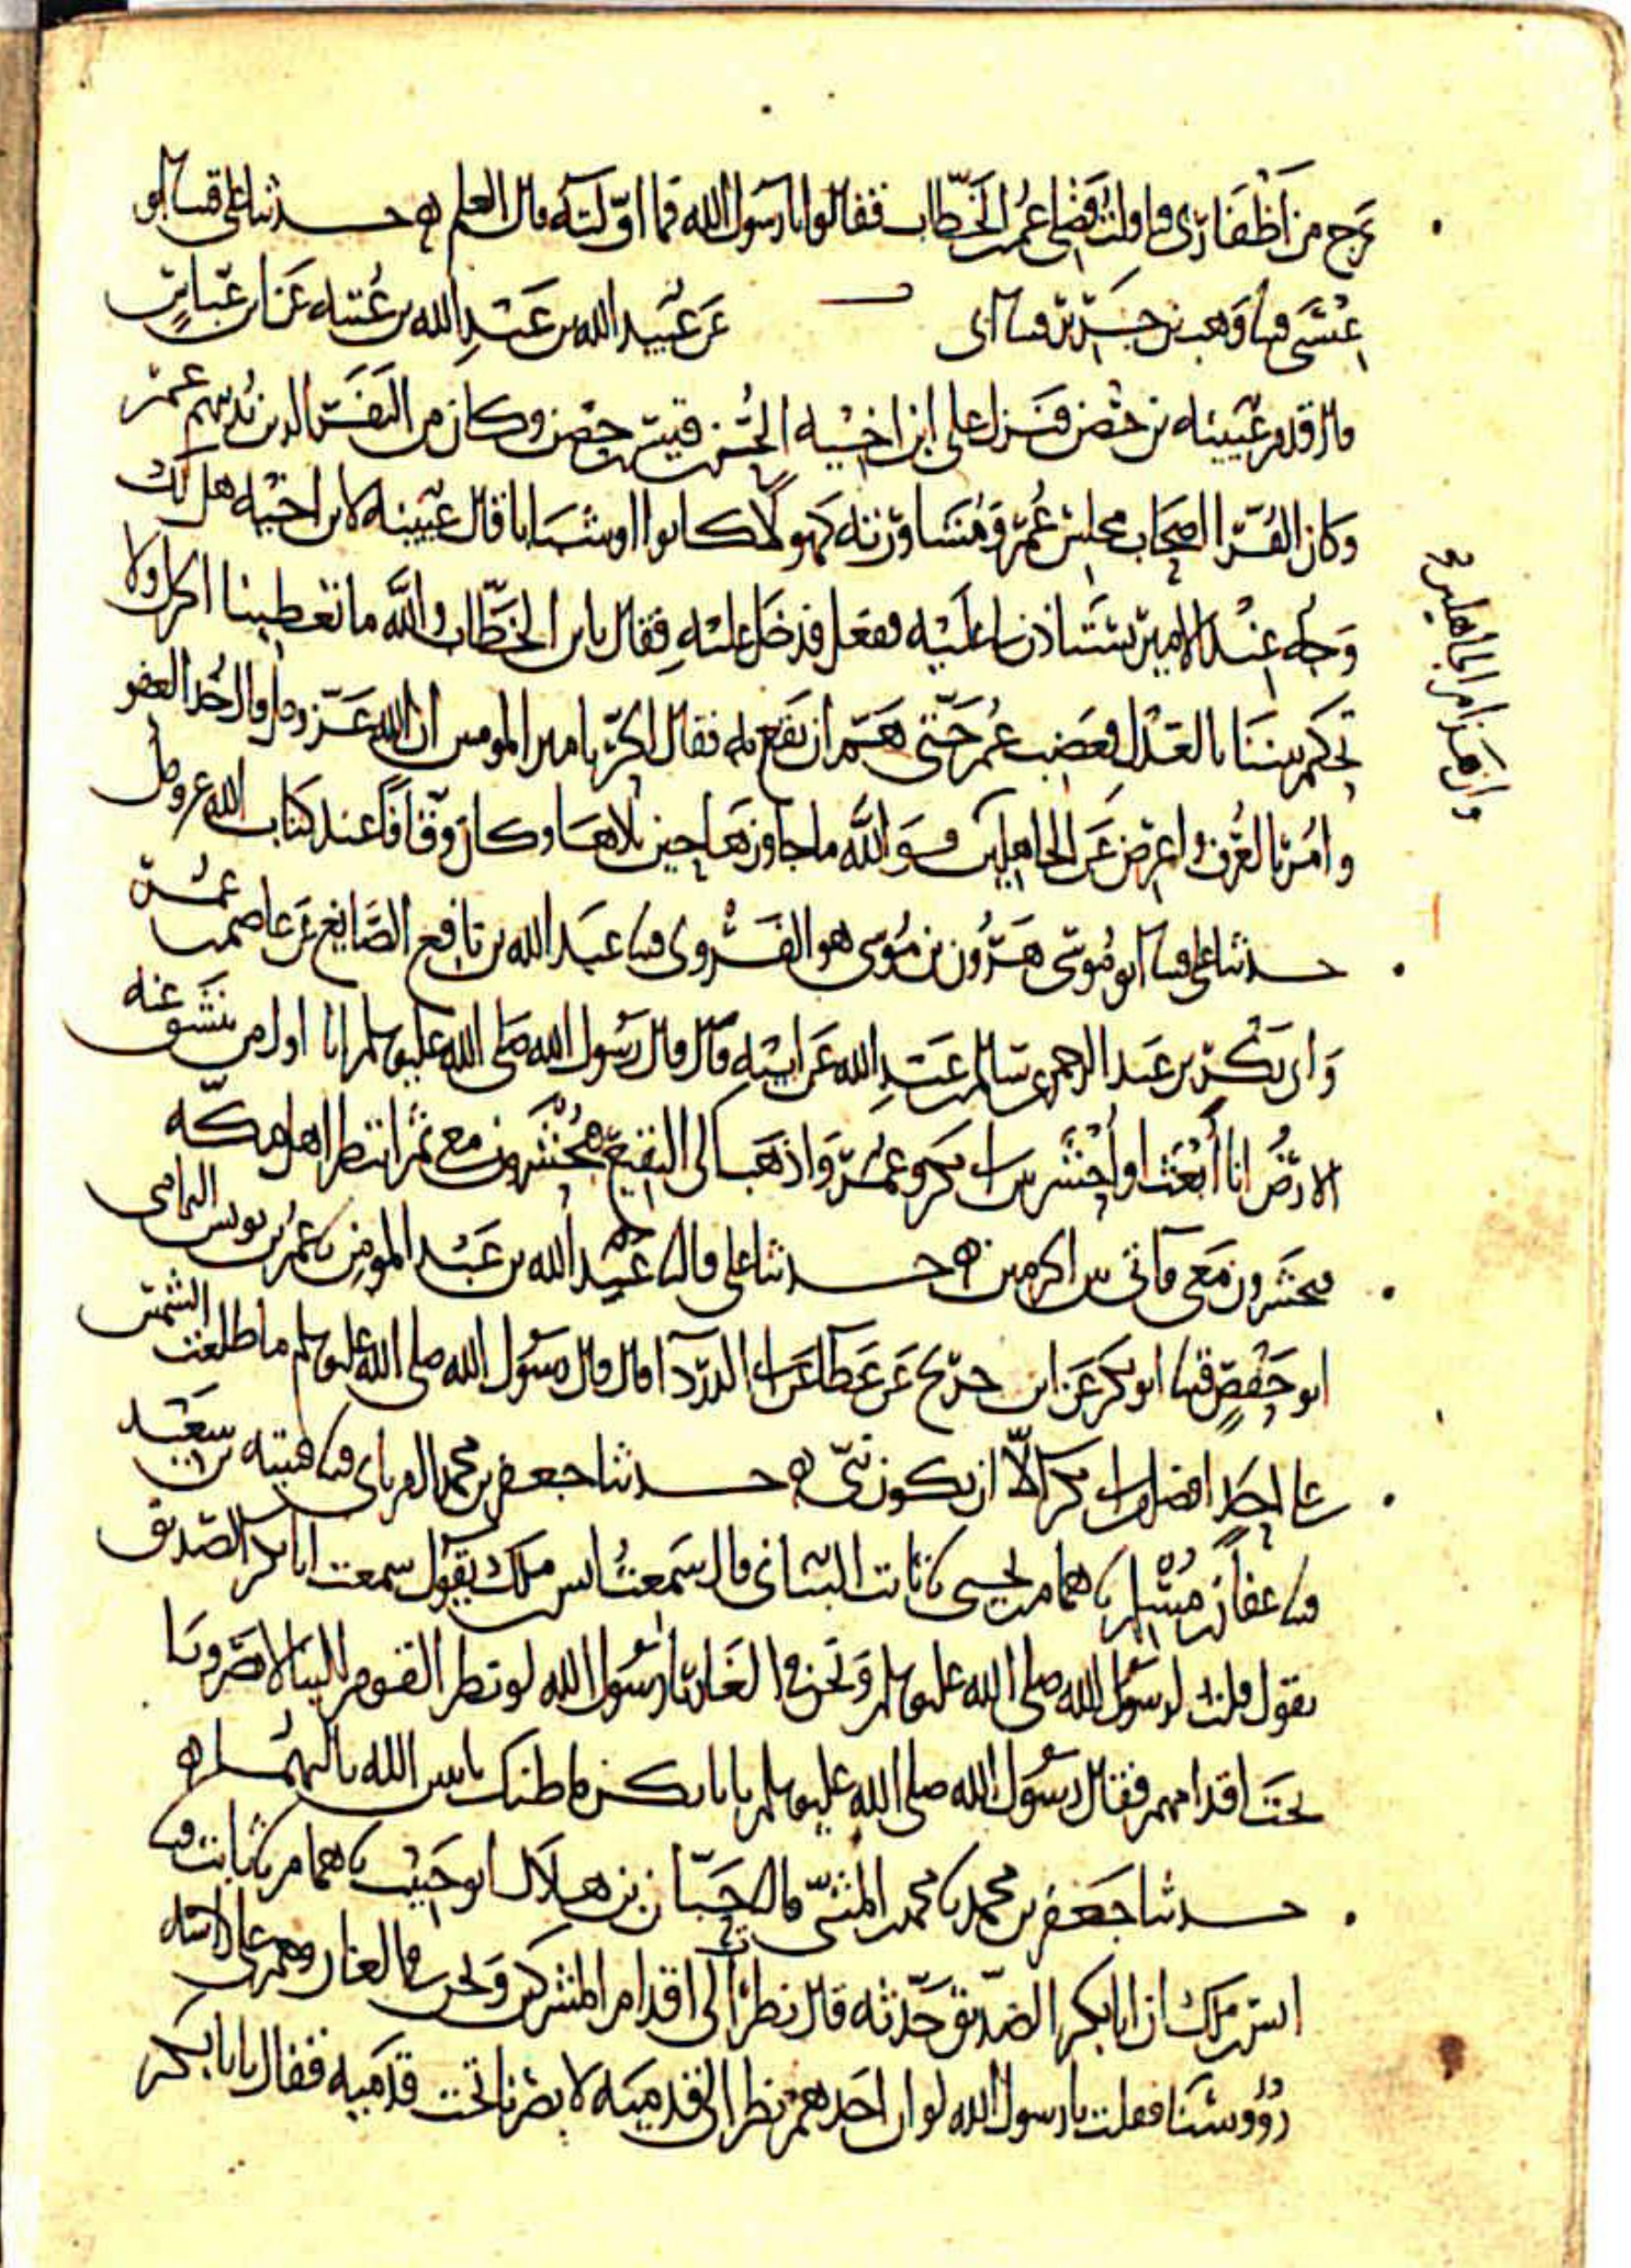 يخرج من أظفاري فاولت فضلي عمر بن الخطاب فقالوا يا رسول الله فما اوّلته قال العلم ه حدثنا علي قثنا ابو
قثنا وهب بن جرير قثنا ابي عن عبيد الله بن عبد الله بن عتبه عن ابن عباس
قال قدم عيينه بن حصن فنزل على ابن اخيه الحُر بن قيس بن حصن وكان من النفر الذين يدنيهم عمر
وكان القرا اصحاب مجلس عمر ومشاورته كهولا كانوا او شبابا قال عيينه لابن اخيه هل لك
وجه عند الامير تستاذن لي عليه ففعل فدخل عليه فقال يابن الخطاب والله ما تعطينا الجزل ولا
تحكم بيننا بالعدل فغضب عمر حتى هم ان يقع به فقال الحر يا امير المومنين ان الله عز وجل قال خذ العفو
وامر بالعرف واعرض عن الجاهلين فوالله ما جاوزها حين تلاها وكان وقافا عند كتاب الله عز وجل
وان هذا من الجاهلين
حدثنا علي قثنا ابو موسى هرون بن موسى هو الفروي قثنا عبد الله بن نافع الصايغ عن عاصم بن عمر
وابي بكر بن عبد الرحمن عن سالم بن عبد الله عن ابيه قال قال رسول الله صلى الله عليه وسلم انا اول من تنشق عنه
الارض انا أبعث او أحشر بين ابي بكر وعمر واذهب الى البقيع فيحشرون معي ثم انتظر اهل مكه
فيحشرون معي فاتي بين الحرمين ه حدثنا علي قال عبيد الله بن عبد المومن نا عمر بن يونس اليمامي
ابو حفص قثنا ابو بكر عن ابن جريج عن عطا عن ابي الدردا قال قال رسول الله صلى الله عليه وسلم ما طلعت الشمس
على احد افضل من ابي بكر الا ان يكون نبي ه حدثنا جعفر بن محمد الفريابي قثنا
قثنا عفان بن مسلم نا همام بن يحيى نا ثابت البناني قال سمعت انس بن ملك يقول سمعت ابا بكر الصديق
يقول قلت لرسول الله صلى الله عليه وسلم ونحن في الغار يا رسول الله لو نظر القوم الينا لابصرونا
تحت اقدامهم فقال رسول الله صلى الله عليه وسلم يا ابا بكر ما ظنك باثنين الله ثالثهما ه
حدثنا جعفر بن محمد نا محمد بن المثنى قال حبان بن هلال ابو حبيب نا همام نا ثابت قثنا
انس بن ملك ان ابا بكر الصديق حدثه قال نظرت الى اقدام المشركين ونحن في الغار وهم على
رؤوسنا فقلت يا رسول الله لو ان احدهم نظر الى قدميه لابصرنا تحت قدميه فقال يا ابا بكر